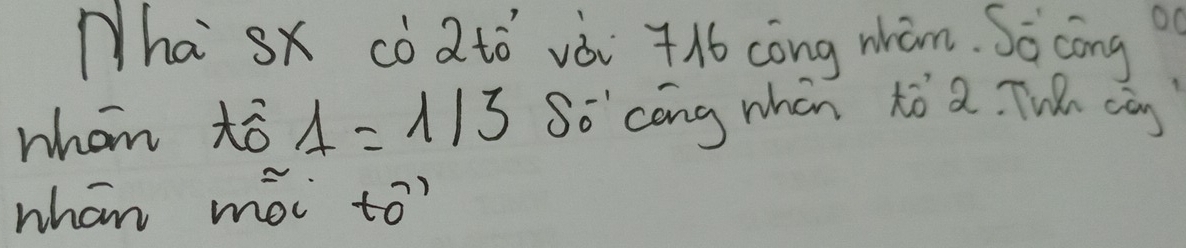 Nhà SX có 2 tổ với 716 công nhân. Số công
nhân tổ 1 = 1/3 Số công nhân tổ 2. Tính công
nhân mỗi tổ